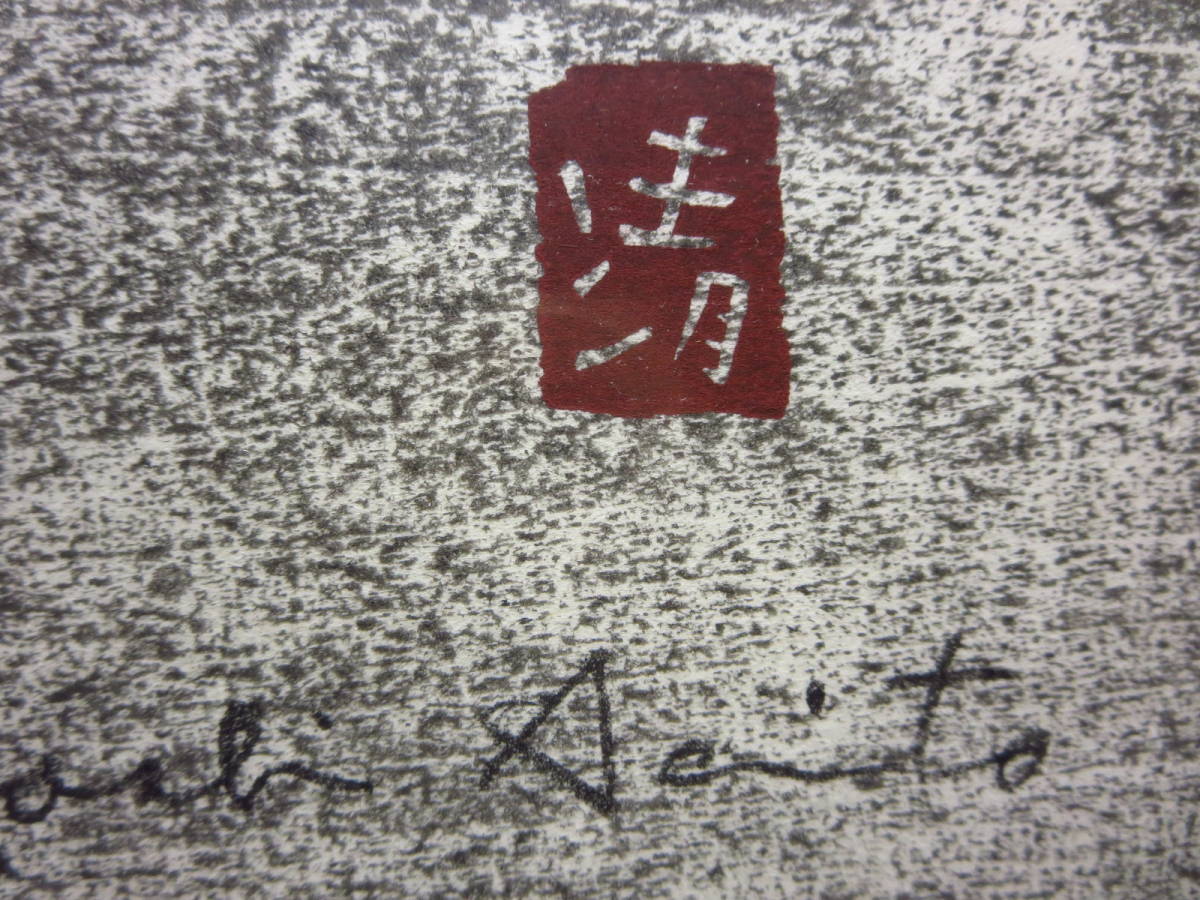 清
oshi Saito